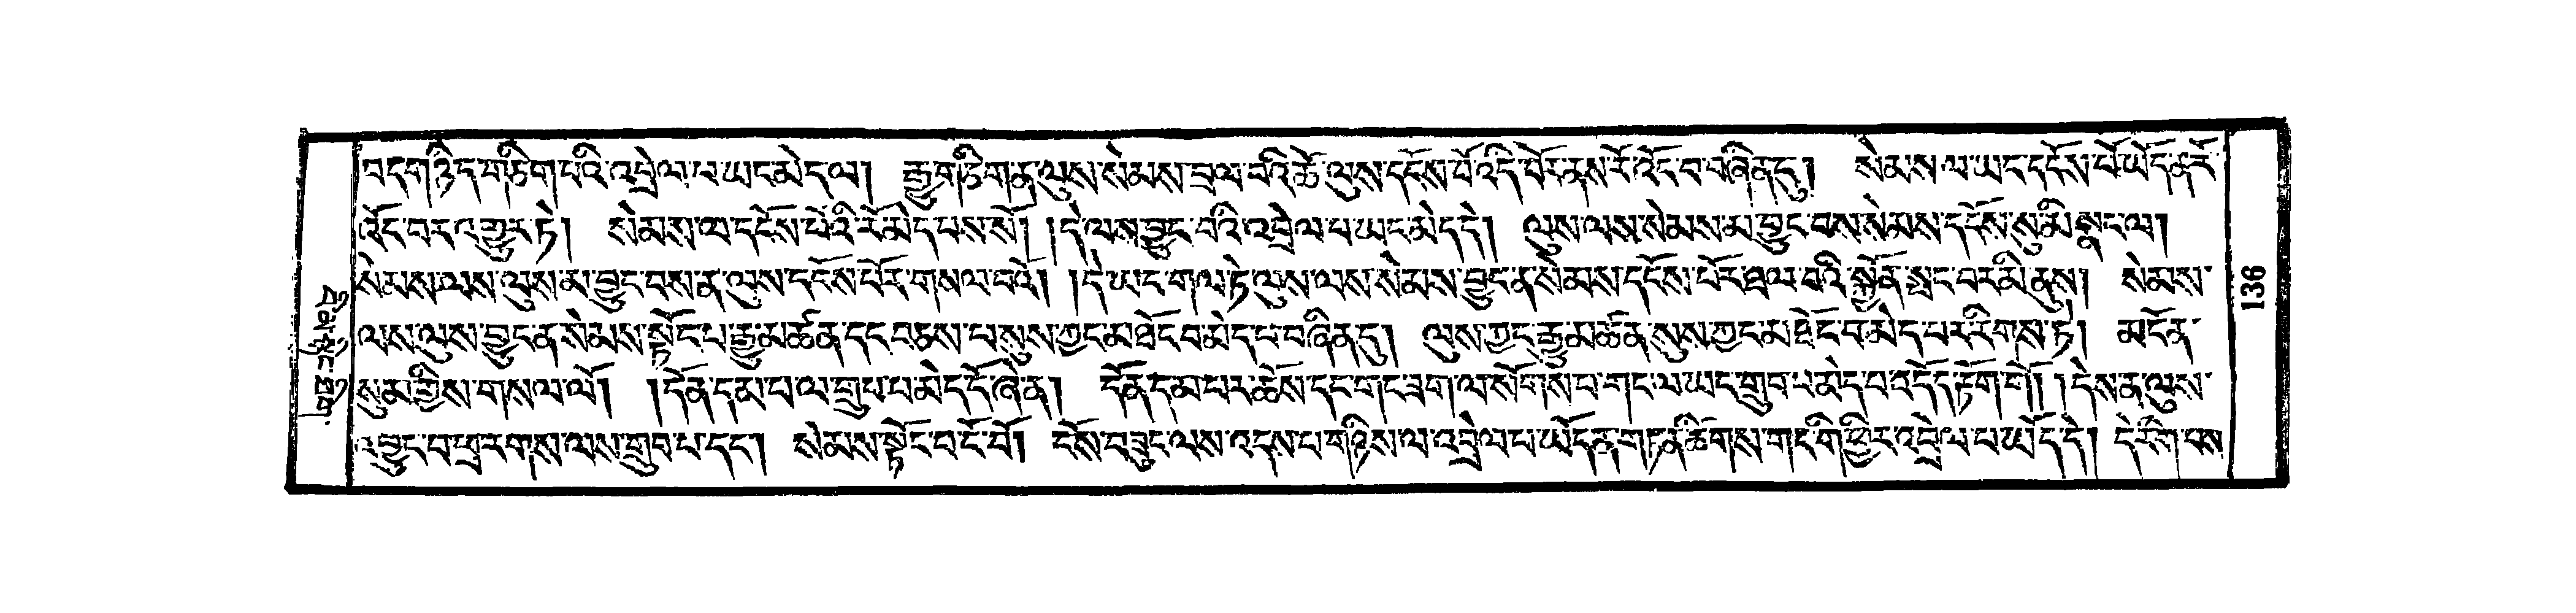 བདག་ཉིད་གཅིག་པའི་འབྲེལ་པ་ཡང་མེད་ལ། རྒྱུ་གཅིག་ན་ལུས་སེམས་བྲལ་བའི་ཚེ་ལུས་དངོས་པོ་འདི་པོར་ནས་རོ་འོང་བ་བཞིན་དུ། སེམས་ལ་ཡང་དངོས་པོ་ཡོད་ན་རོ་
འོང་བར་འགྱུར་ཏེ། སེམས་ལ་དངོས་པོའི་རོ་མེད་པས་སོ། །དེ་ལས་བྱུང་བའི་འབྲེལ་པ་ཡང་མེད་དེ། ལུས་ལས་སེམས་མ་བྱུང་བས་སེམས་དངོས་སུ་མི་སྣང་ལ།
སེམས་ལས་ལུས་མ་བྱུང་བས་ན་ལུས་དངོས་པོར་གསལ་བའོ། །དེ་ཡང་གལ་ཏེ་ལུས་ལས་སེམས་བྱུང་ན་སེམས་དངོས་པོར་ཐལ་བའི་སྐྱོན་སྤང་བར་མི་ནུས། སེམས་
ལས་ལུས་བྱུང་ན་སེམས་སྟོང་པ་རྒྱུ་མཚན་དང་བཅས་པ་སུས་ཀྱང་མ་མཐོང་བ་མེད་པ་བཞིན་དུ། ལུས་ཀྱང་རྒྱུ་མཚན་སུས་ཀྱང་མ་མཐོང་བ་མེད་པར་རིགས་ཏེ། མངོན་
སུམ་གྱིས་གསལ་ལོ། །དོན་དམ་པ་ལ་གྲུབ་པ་མེད་དོ་ཞེ་ན། དོན་དམ་པར་ཆོས་དང་གང་ཟག་ལ་སོགས་པ་གང་ལ་ཡང་གྲུབ་པ་མེད་བ་བདོད་རྟོག་གོ། །དེས་ན་ལུས་
འབྱུང་བ་ཕྲ་རགས་ལས་གྲུབ་པ་དང༌། སེམས་སྟོང་བ་ངོ་བོ། ངོས་བཟུང་ལས་འདས་པ་གཉིས་ལ་འབྲེལ་པ་ཡོད་ན་གཏན་ཚིགས་གང་གི་ཕྱིར་འབྲེལ་པ་ཡོད་དེ། དེ་རིག་པས